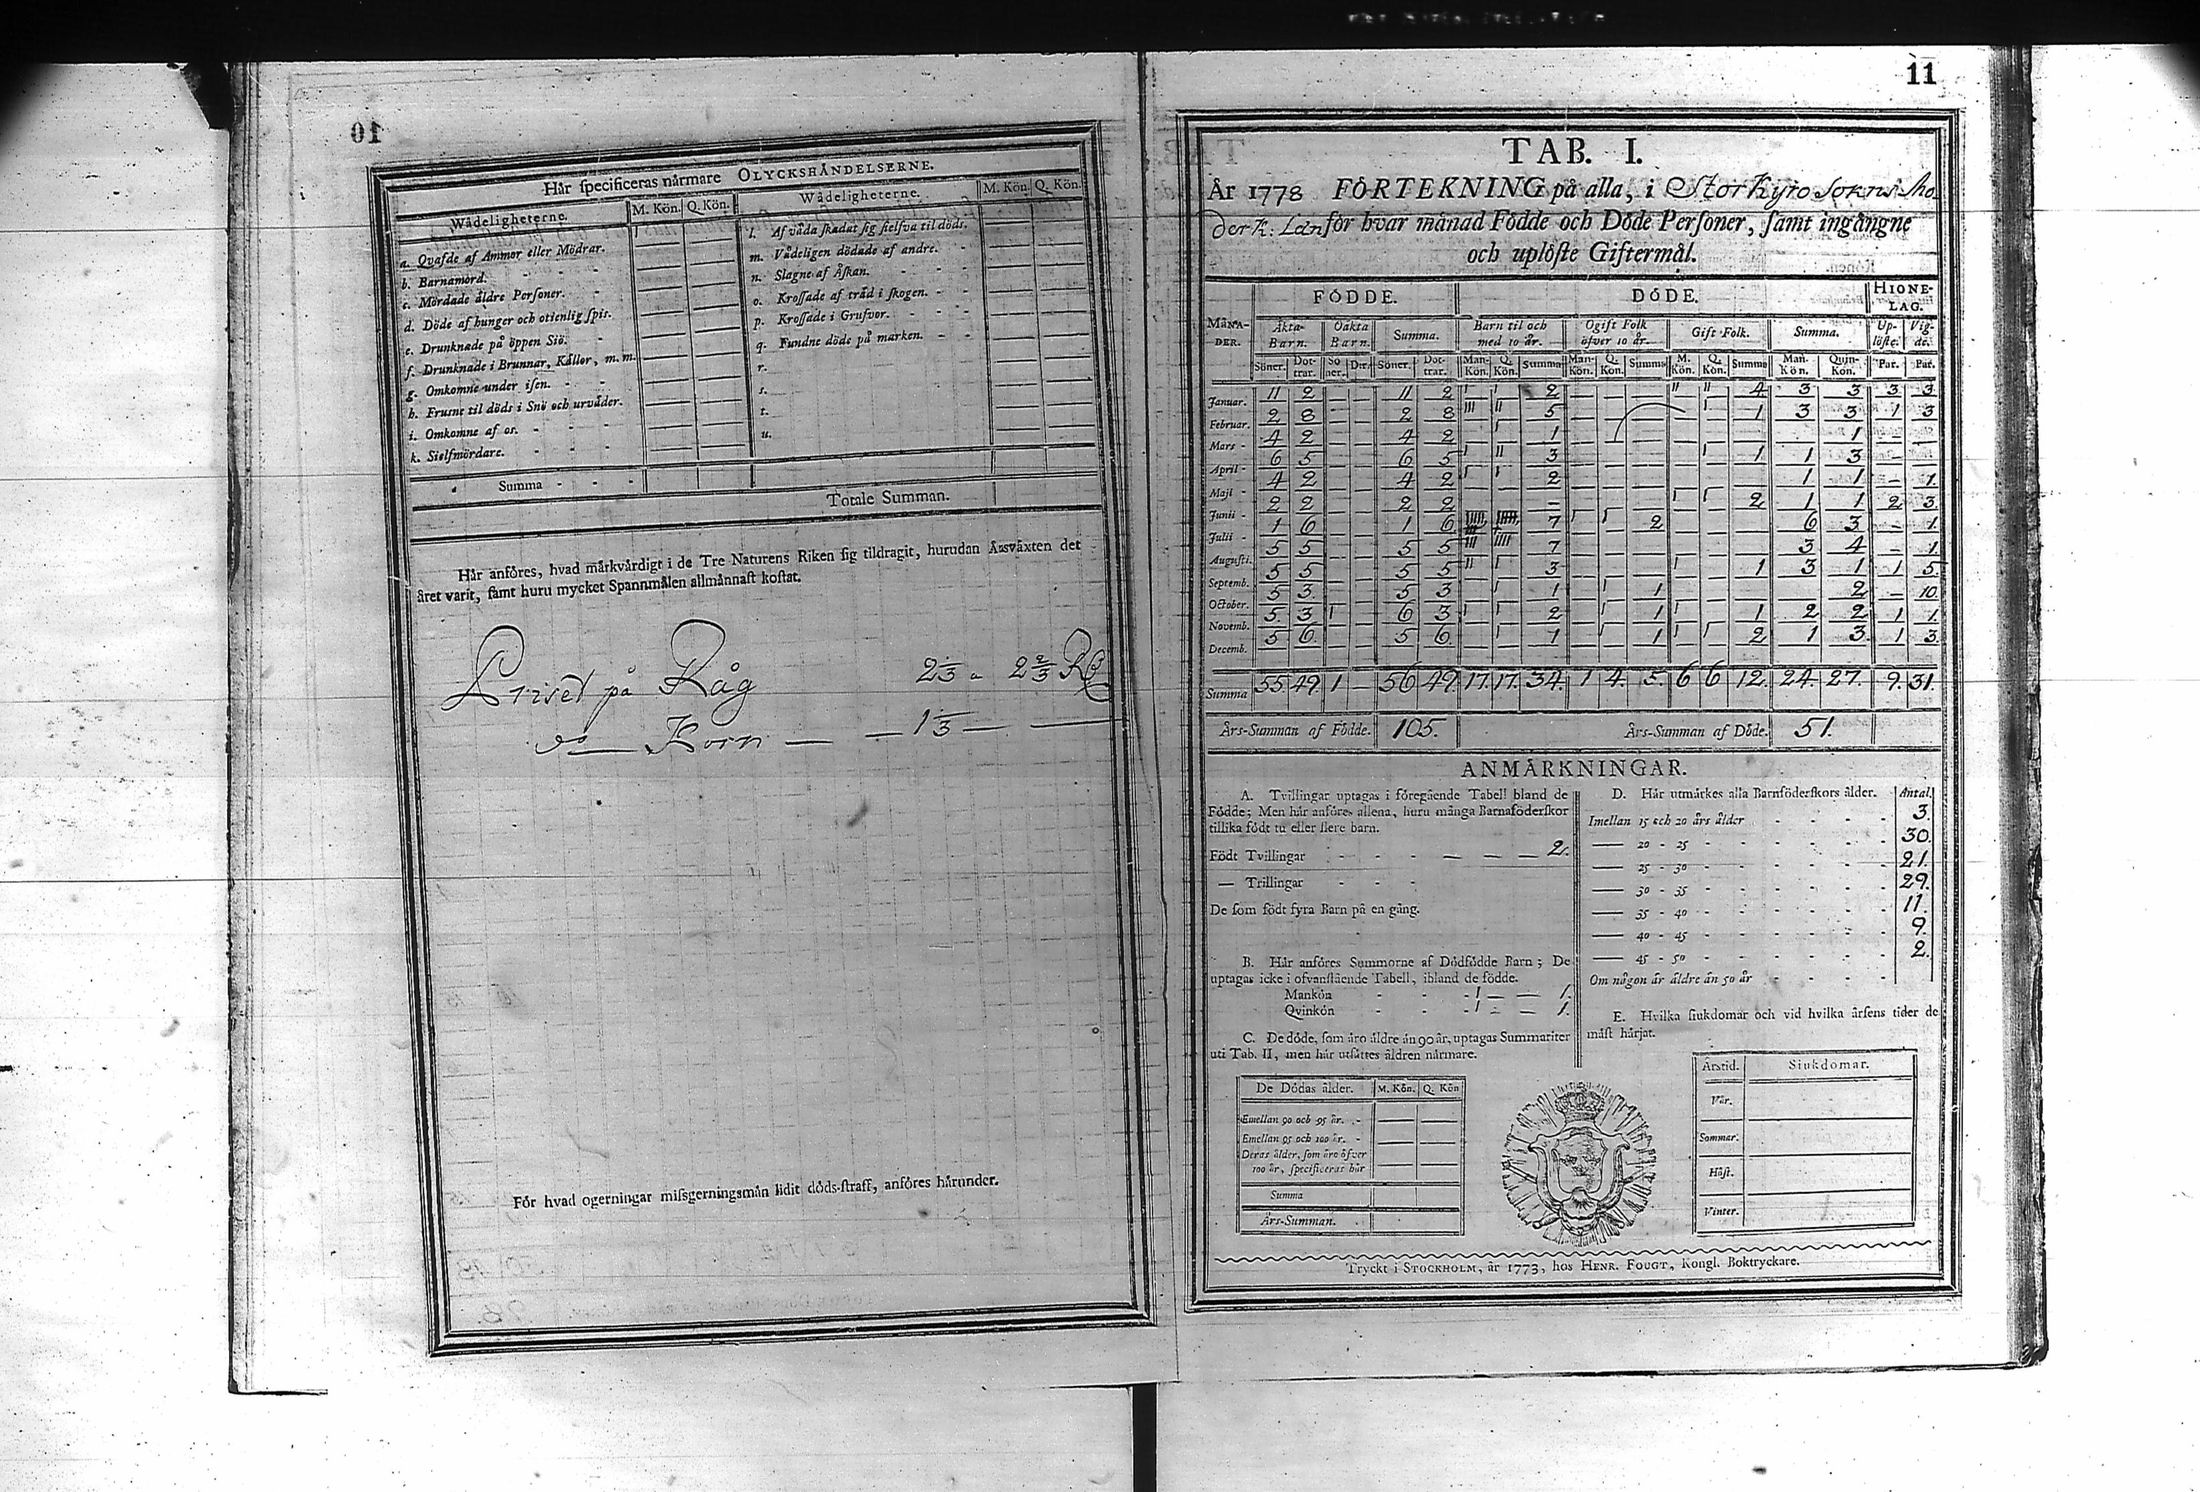 10
Hår specificeras nårmare OLYCKSHÅNDELSERNE.
Wådeligheterne. M. Kön. Q. Kön. Wådeligheterne. M. Kön. Q. Kön.
a. Qvafde af Ammor eller Mödrar.
b. Barnamord.
c. Mördade åldre Personer.
d. Döde af hunger och otienlig spis.
e. Drunknade på öppen Siö.
f. Drunknade i Brunnar, Kållor, m. m.
g. Omkomne under isen.
h. Frusne til döds i Snö och urvåder.
i. Omkomne af os.
k. Sielfmördare.
l. Af våda skadat sig sielfva til döds.
m. Vådeligen dödade af andre.
n. Slagne af Åskan.
o. Krossade af tråd i skogen.
p. Krossade i Grufvor.
q. Fundne döde på marken.
r.
s.
t.
u.
Summa
Totale Summan.
Hår anföres, hvad mårkvårdigt i de Tre Naturens Riken sig tildragit, hurudan Årsvåxten det
året varit, samt huru mycket Spannmålen allmånnast kostat.
Priset på Råg 2 1/3 a 2 2/3 R
do — Korn — — 1 1/3 — —
För hvad ogerningar missgerningsmån lidit döds-straff, anföres hårunder.
11
TAB. I.
År 1778 FÖRTEKNING på alla, i Storkyro Sokns
för hvar månad Födde och Döde Personer, samt ingångne
och uplöste Giftermål.
MÅNA-DER. FÖDDE. DÖDE. HIONE-LAG.
Åkta Barn. Oåkta Barn. Summa. Barn til och med 10 år. Ogift Folk öfver 10 år. Gift Folk. Summa. Up-löste. Vig-de.
Söner. Dot-trar. So ner. Dtr. Söner. Dot-trar. Man-Kön. Q. Kön. Summa Man-Kön. Q. Kön. Summa M. Kön. Q. Kön. Summa Man. Kön. Quin-Kön. Par. Par.
Januar. 11 2 — — 11 2 1 1 2 — — — 11 11 4 3 3 3 3
Februar. 2 8 — — 2 8 111 11 5 — — — — 1 1 3 3 1 3
Mars 4 2 — — 4 2 — 1 1 — — — — — — — 1 — —
April 6 5 — — 6 5 1 11 3 — — — — 1 1 1 3 — —
Maji 4 2 — — 4 2 1 1 2 — — — — — — 1 1 — 1
Junii 2 2 — — 2 2 — — — — — — 1 1 2 1 1 2 3
Julii 1 6 — — 1 6 7 1 1 2 — — — 6 3 — 1
Augusti. 5 5 — — 5 5 111 1111 7 — — — — — — 3 4 — 1
Septemb. 5 5 — — 5 5 11 1 3 — — — 1 — 1 3 1 1 5
October. 5 3 — — 5 3 — 1 1 — 1 1 — — — — 2 — 10
Novemb. 5 3 1 — 6 3 1 1 2 — 1 1 1 — 1 2 2 1 1
Decemb. 5 6 — — 5 6 — 1 1 — 1 1 1 1 2 1 3 1 3
Summa 55 49. 1 — 56 49. 17. 17. 34. 1 4. 5. 6 6 12. 24. 27. 9. 31.
Års-Summan af Födde. 105. Års-Summan af Döde. 51.
ANMÅRKNINGAR.
A. Tvillingar uptagas i föregående Tabell bland de
Födde; Men hår anföres allena, huru många Barnaföderskor
tillika födt tu eller flere barn.
Födt Tvillingar 2.
— Trillingar
De som födt fyra Barn på en gång.
B. Hår anföres Summorne af Dödfödde Barn; De
uptagas icke i ofvanstående Tabell, ibland de födde.
Mankön 1 — — 1.
Qvinkön 1 — — 1.
C. De döde, som åro åldre ån 90 år, uptagas Summariter
uti Tab. II, men hår utsåttes åldren nårmare.
De Dödas ålder. M. Kön. Q. Kön
Emellan 90 och 95 år.
Emellan 95 och 100 år.
Deras ålder, som åro öfver
100 år, specificeras hår
Summa
Års-Summan.
D. Hår utmårkes alla Barnföderskors ålder. Antal.
Imellan 15 och 20 års ålder 3.
— 20 - 25 30.
— 25 - 30 21.
— 30 - 35 29.
— 35 - 40 11.
— 40 - 45 9.
— 45 - 50 2.
Om någon år åldre ån 50 år
E. Hvilka siukdomar och vid hvilka årsens tider de
måst hårjat.
Årstid. Siukdomar.
Vår.
Sommar.
Höst.
Vinter.
Tryckt i STOCKHOLM, år 1773, hos HENR. FOUGT, Kongl. Boktryckare.